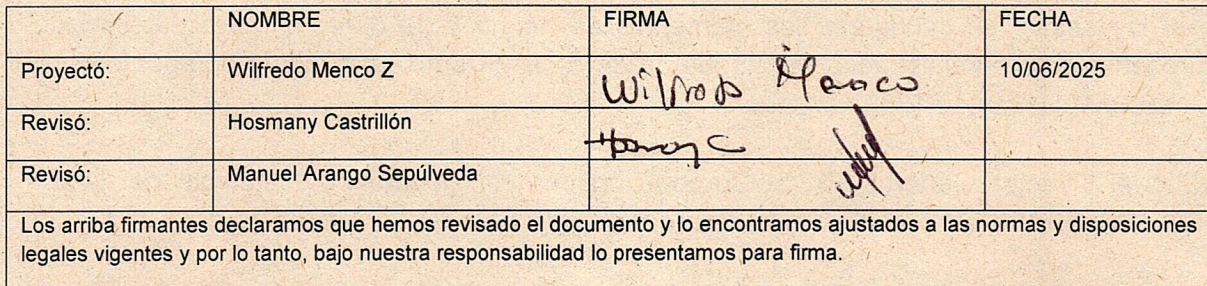 NOMBRE FIRMA FECHA
Proyectó: Wilfredo Menco Z Wilfredo Menco 10/06/2025
Revisó: Hosmany Castrillón
Revisó: Manuel Arango Sepúlveda
Los arriba firmantes declaramos que hemos revisado el documento y lo encontramos ajustados a las normas y disposiciones
legales vigentes y por lo tanto, bajo nuestra responsabilidad lo presentamos para firma.